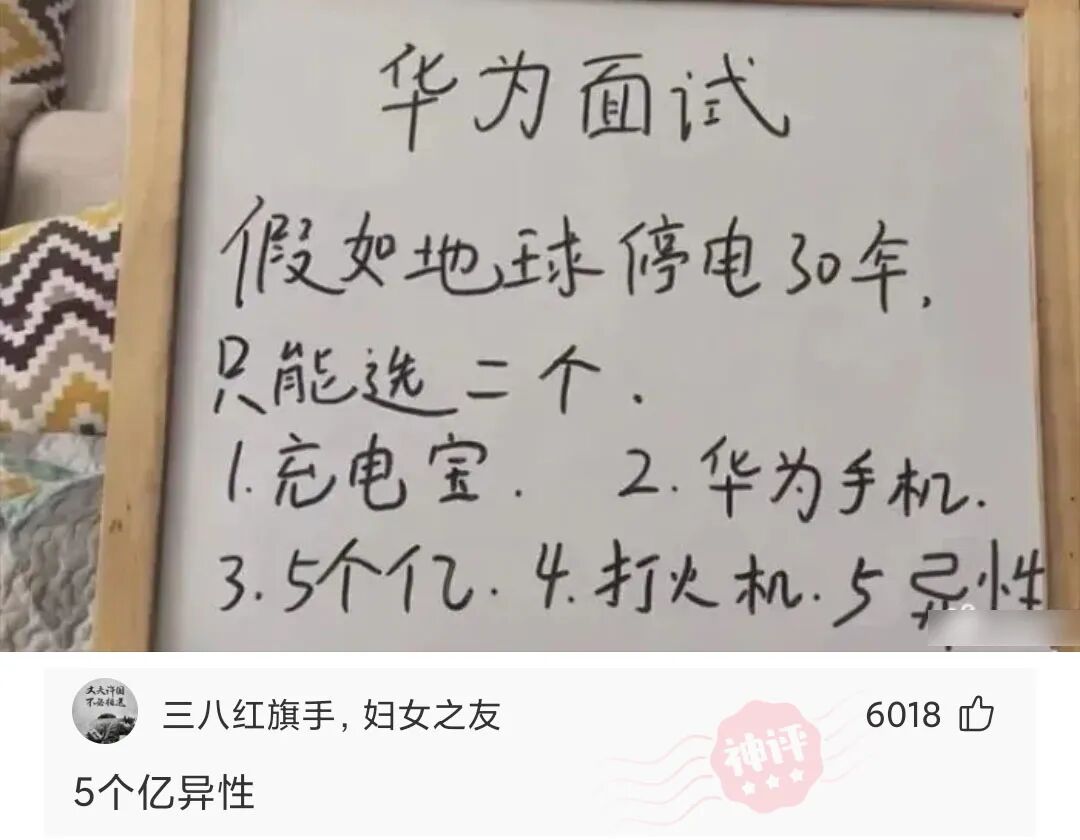 华为面试
假如地球停电30年，
只能选二个．
1.充电宝． 2.华为手机．
3.5个亿．4.打火机．5异性
丈夫许国
不必相送
三八红旗手，妇女之友
6018
神评
5个亿异性